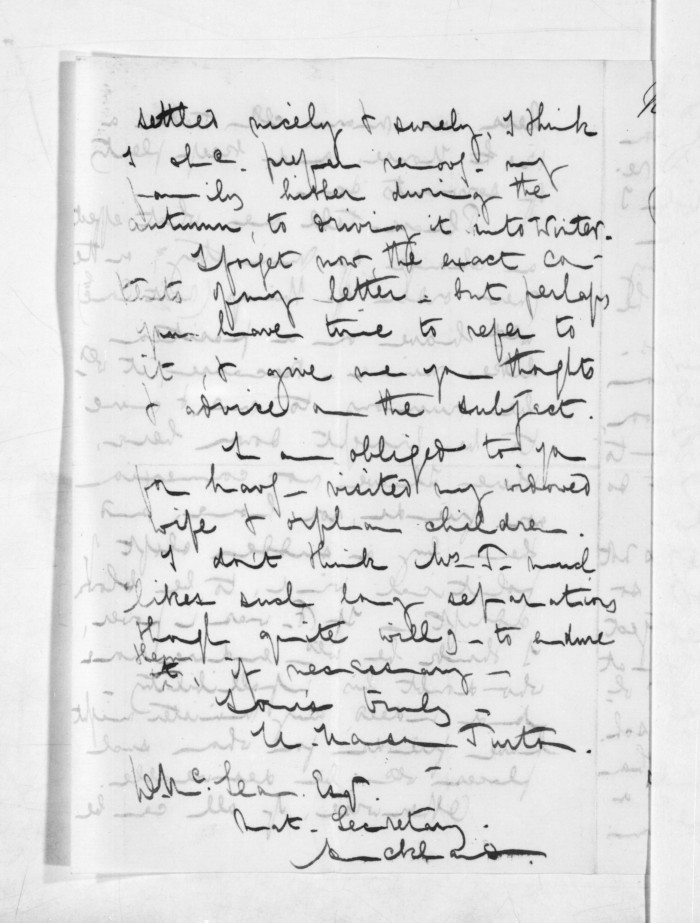 settles nicely & surely, I think
I shd. prefer removg. my
family hither during the
autumn, to driving it into Winter.
I forget now, the exact con-
tents of my letter - but perhaps
you have time to refer to
it, & give me yr thoughts
& advice on the subject.
I am obliged to you
for havg. visited my widowed
wife & orphan children.
I don't think Mrs T. much
likes such long separations
though quite willg - to endure
them
, if necessary -
Yours truly -
H. Hanson Turton.
D. McLean. Esq.
Nat. Secretary.
Auckland.